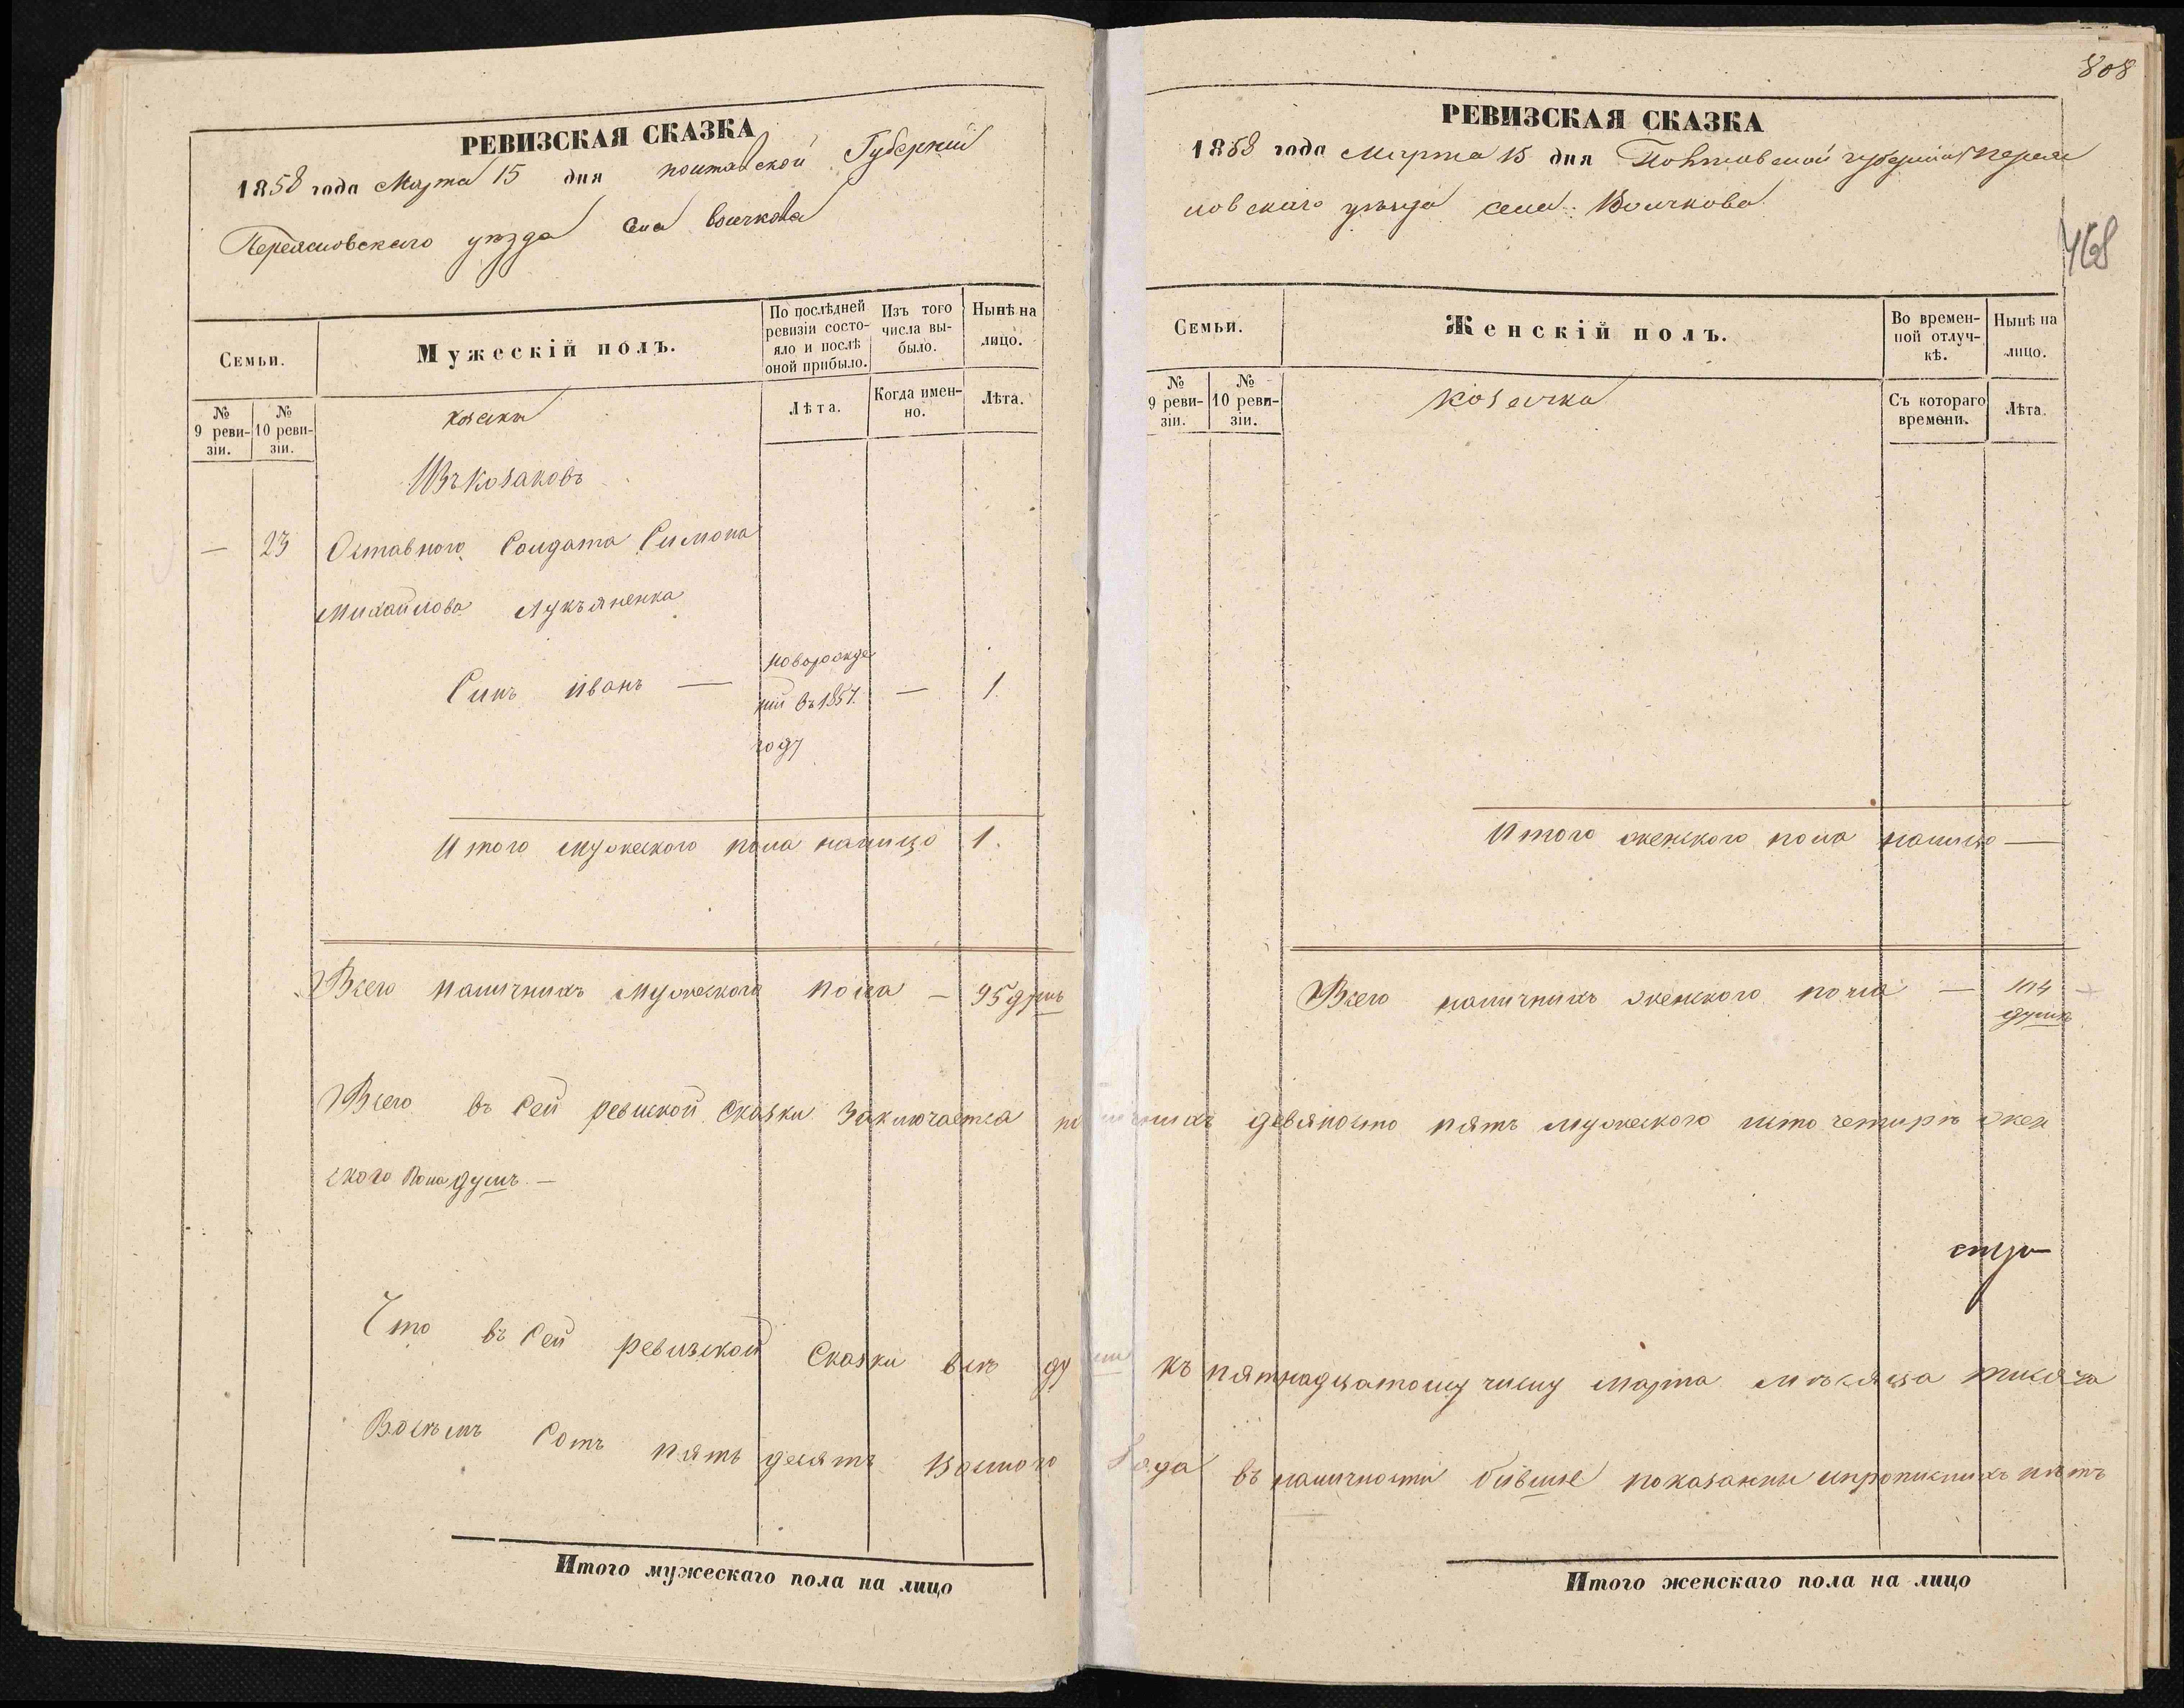 808
468
РЕВИЗСКАЯ СКАЗКА
1858 года Марта 15 дня Полтавской Губернии
Переясловского уѣзда Села Волчкова
Семьи.
Мужескій полъ.
По послѣдней ревизіи состояло и послѣ оной прибыло.
Изъ того числа выбыло.
Нынѣ на лицо.
№ 9 ревизіи.
№ 10 ревизіи.
козаки
Лѣта.
Когда именно.
Лѣта.
Изъ Козаковъ
— 23 Оставного Солдата Симона
Михайлова Лукъяненка
Синъ Иванъ — новорожде
ний въ 1857. — 1.
году
Итого мужеского пола налицо 1.
Всего наличнихъ мужеского пола — 95 душъ
РЕВИЗСКАЯ СКАЗКА
1858 года Марта 15 дня Полтавской губернии Переяс
ловскаго уѣзда села Волчкова
Семьи.
Женскій полъ.
Во временной отлучкѣ.
Нынѣ на лицо.
№ 9 ревизіи.
№ 10 ревизіи.
козачки
Съ котораго времени.
Лѣта.
Итого женского пола налицо —
Всего наличнихъ женского пола — 104
душъ
Всего въ Сей ревиской Сказки Заключается наличнихъ девяносто пять мужеского исто четирѣ жен
ского пола душъ. —
Что въ Сей ревизской Сказки всѣ души къ пятнадцатому числу Марта мѣсяца тисяча
Восѣмъ Сотъ пять десятъ Восмого Года въ наличности бившие показанни ипрописнихъ нѣтъ
Итого мужескаго пола на лицо
Итого женскаго пола на лицо